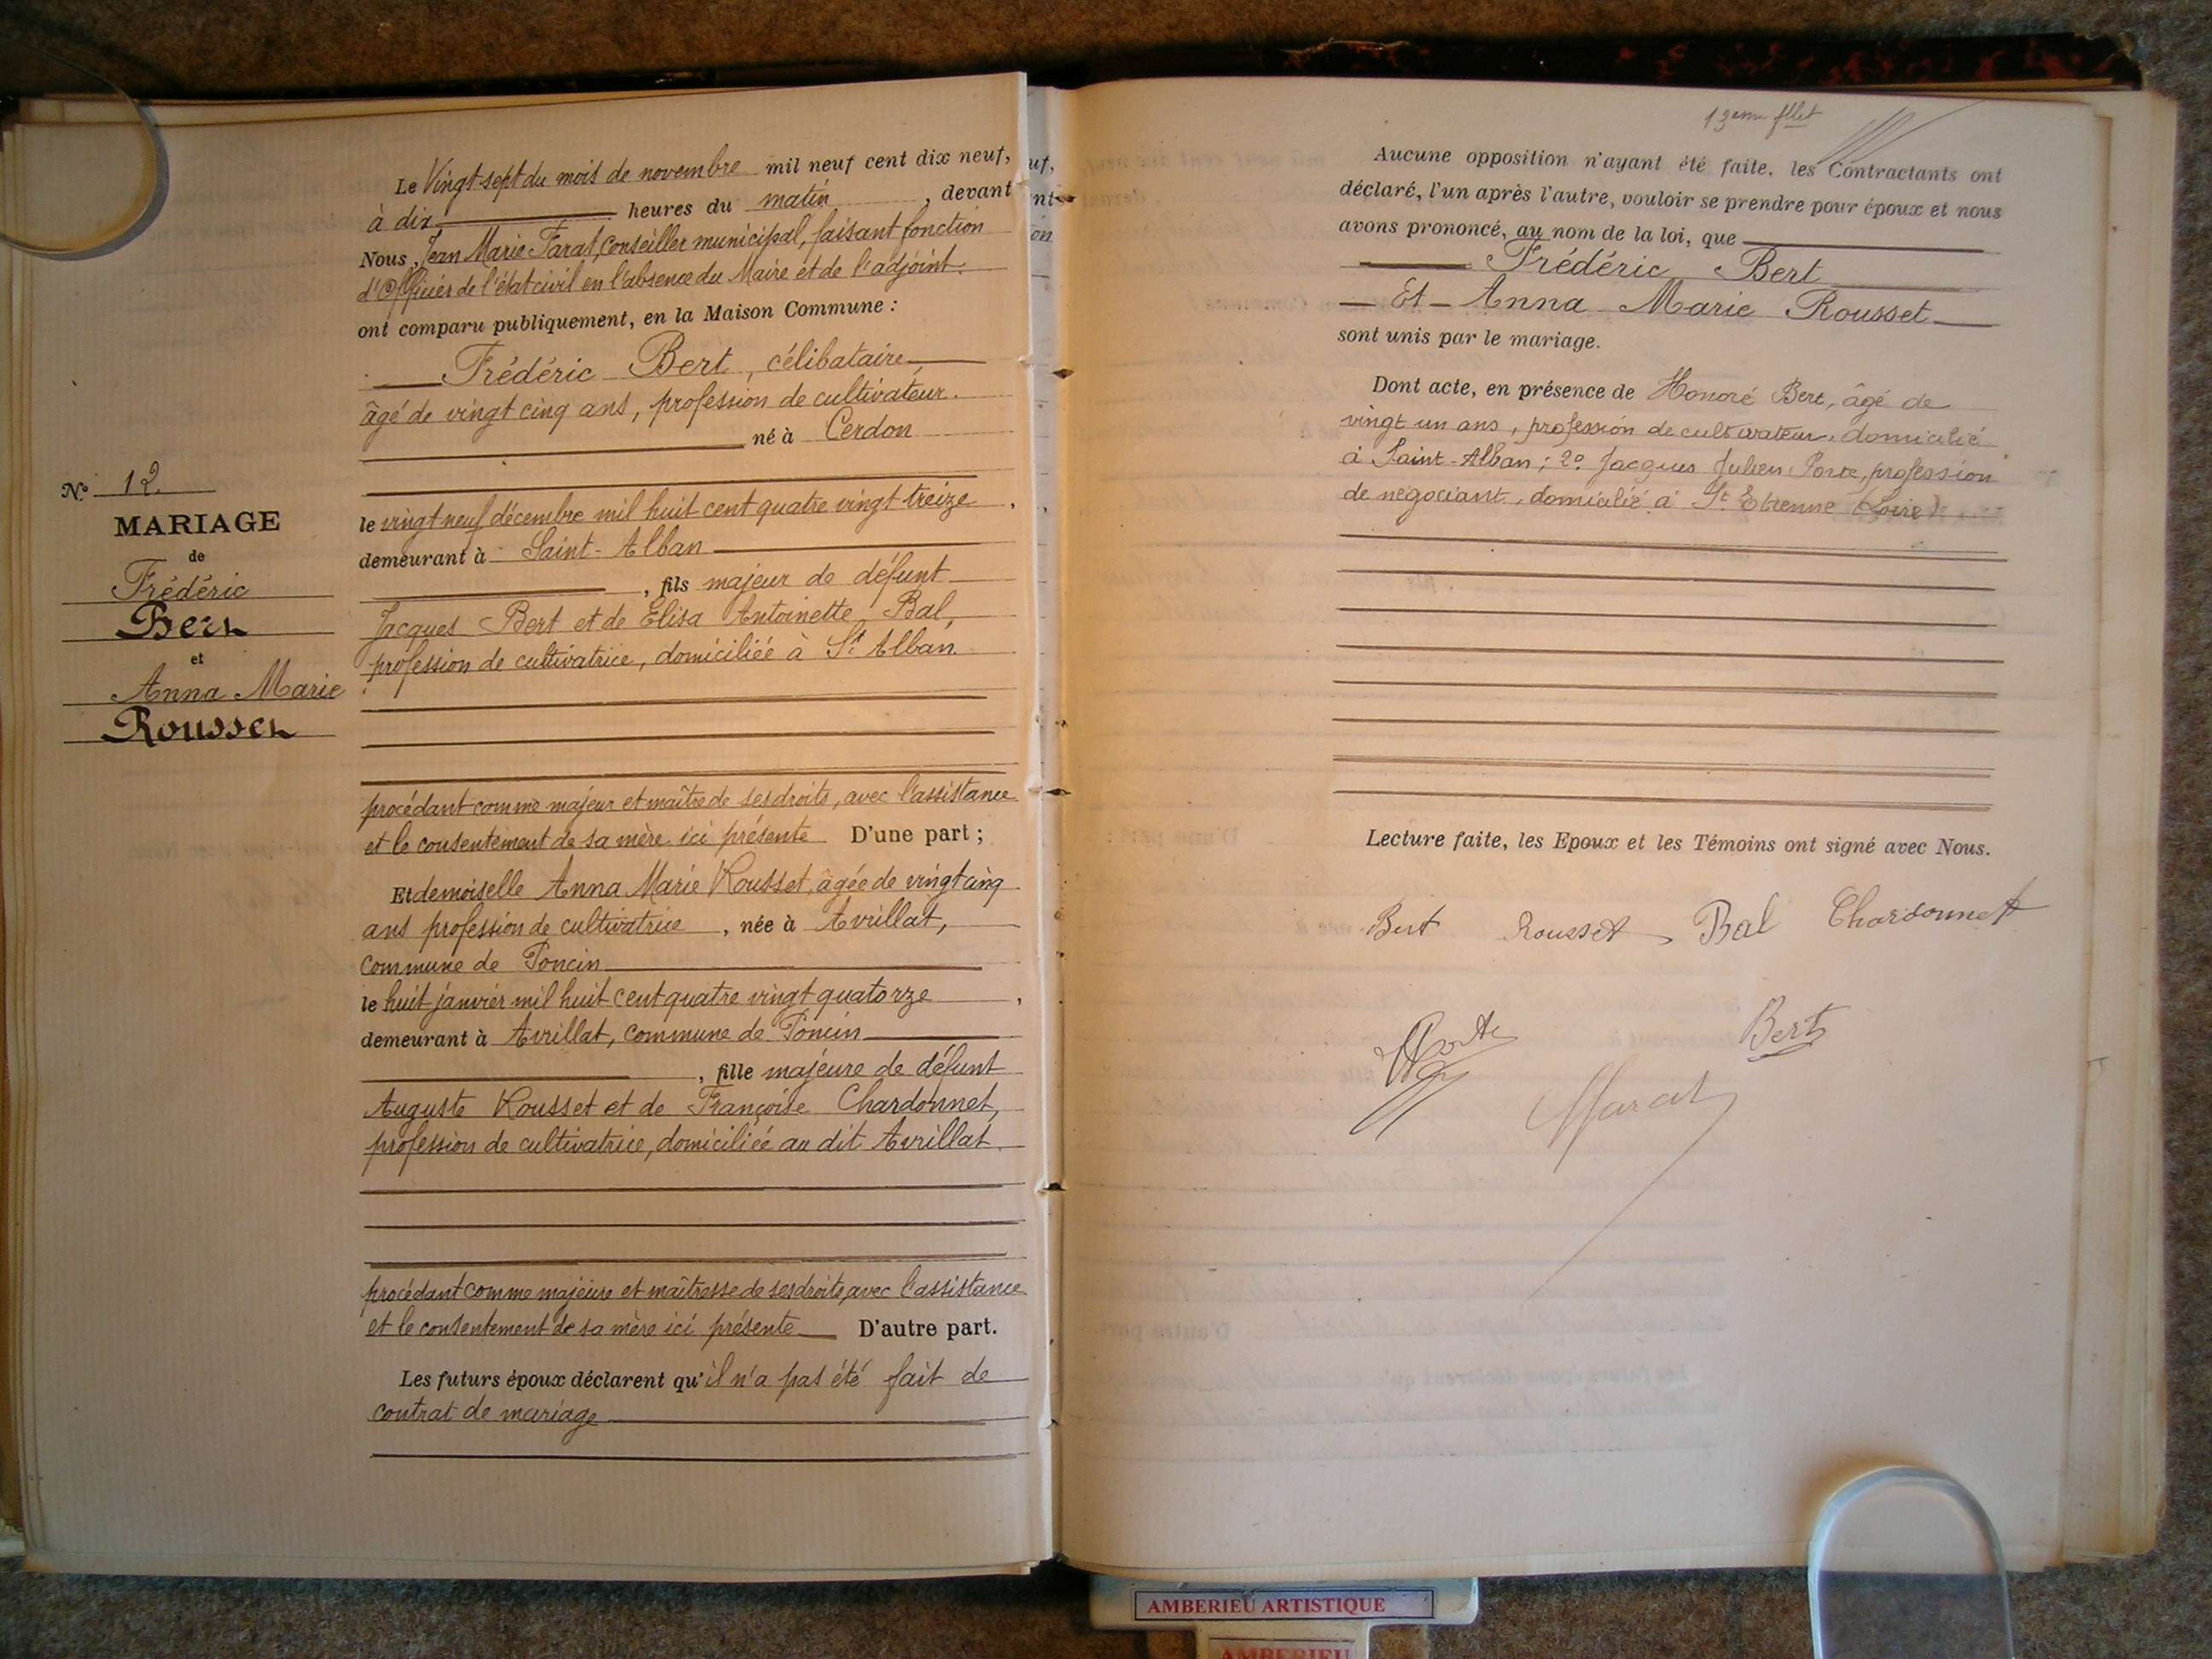 Le Vingt-sept du mois de novembre mil neuf cent dix neuf,
à dix heures du matin, devant
Nous, Jean Marie Farat, Conseiller municipal, faisant fonction
d'Officier de l'état civil en l'absence du Maire et de l'adjoint.
ont comparu publiquement, en la Maison Commune :
Frédéric Bert, célibataire,
âgé de vingt cinq ans, profession de cultivateur.
né à Cerdon
le vingt neuf décembre mil huit cent quatre vingt treize,
demeurant à Saint-Alban
, fils majeur de défunt
Jacques Bert et de Elisa Antoinette Bal,
profession de cultivatrice, domiciliée à St Alban.
procédant comme majeur et maître de ses droits, avec l'assistance
et le consentement de sa mère ici présente D'une part ;
Et demoiselle Anna Marie Rousset, âgée de vingt cinq
ans profession de cultivatrice, née à Avrillat,
commune de Poncin
le huit janvier mil huit cent quatre vingt quatorze,
demeurant à Avrillat, commune de Poncin
, fille majeure de défunt
Auguste Rousset et de Françoise Chardonnet,
profession de cultivatrice, domiciliée au dit Avrillat.
procédant comme majeure et maîtresse de ses droits, avec l'assistance
et le consentement de sa mère ici présente D'autre part.
Les futurs époux déclarent qu'il n'a pas été fait de
contrat de mariage
No 12.
MARIAGE
de
Frédéric
Bert
et
Anna Marie
Rousset
uf,
nt
on
13eme fllet
Aucune opposition n'ayant été faite, les Contractants ont
déclaré, l'un après l'autre, vouloir se prendre pour époux et nous
avons prononcé, au nom de la loi, que
Frédéric Bert
Et Anna Marie Rousset
sont unis par le mariage.
Dont acte, en présence de Honoré Bert, âgé de
vingt un ans, profession de cultivateur, domicilié
à Saint-Alban ; 2o Jacques Julien Porte, profession
de négociant, domicilié à St Etienne (Loire).
Lecture faite, les Epoux et les Témoins ont signé avec Nous.
Bert Rousset Bal Chardonnet
Porte Bert
AMBERIEU ARTISTIQUE
AMBERIEU